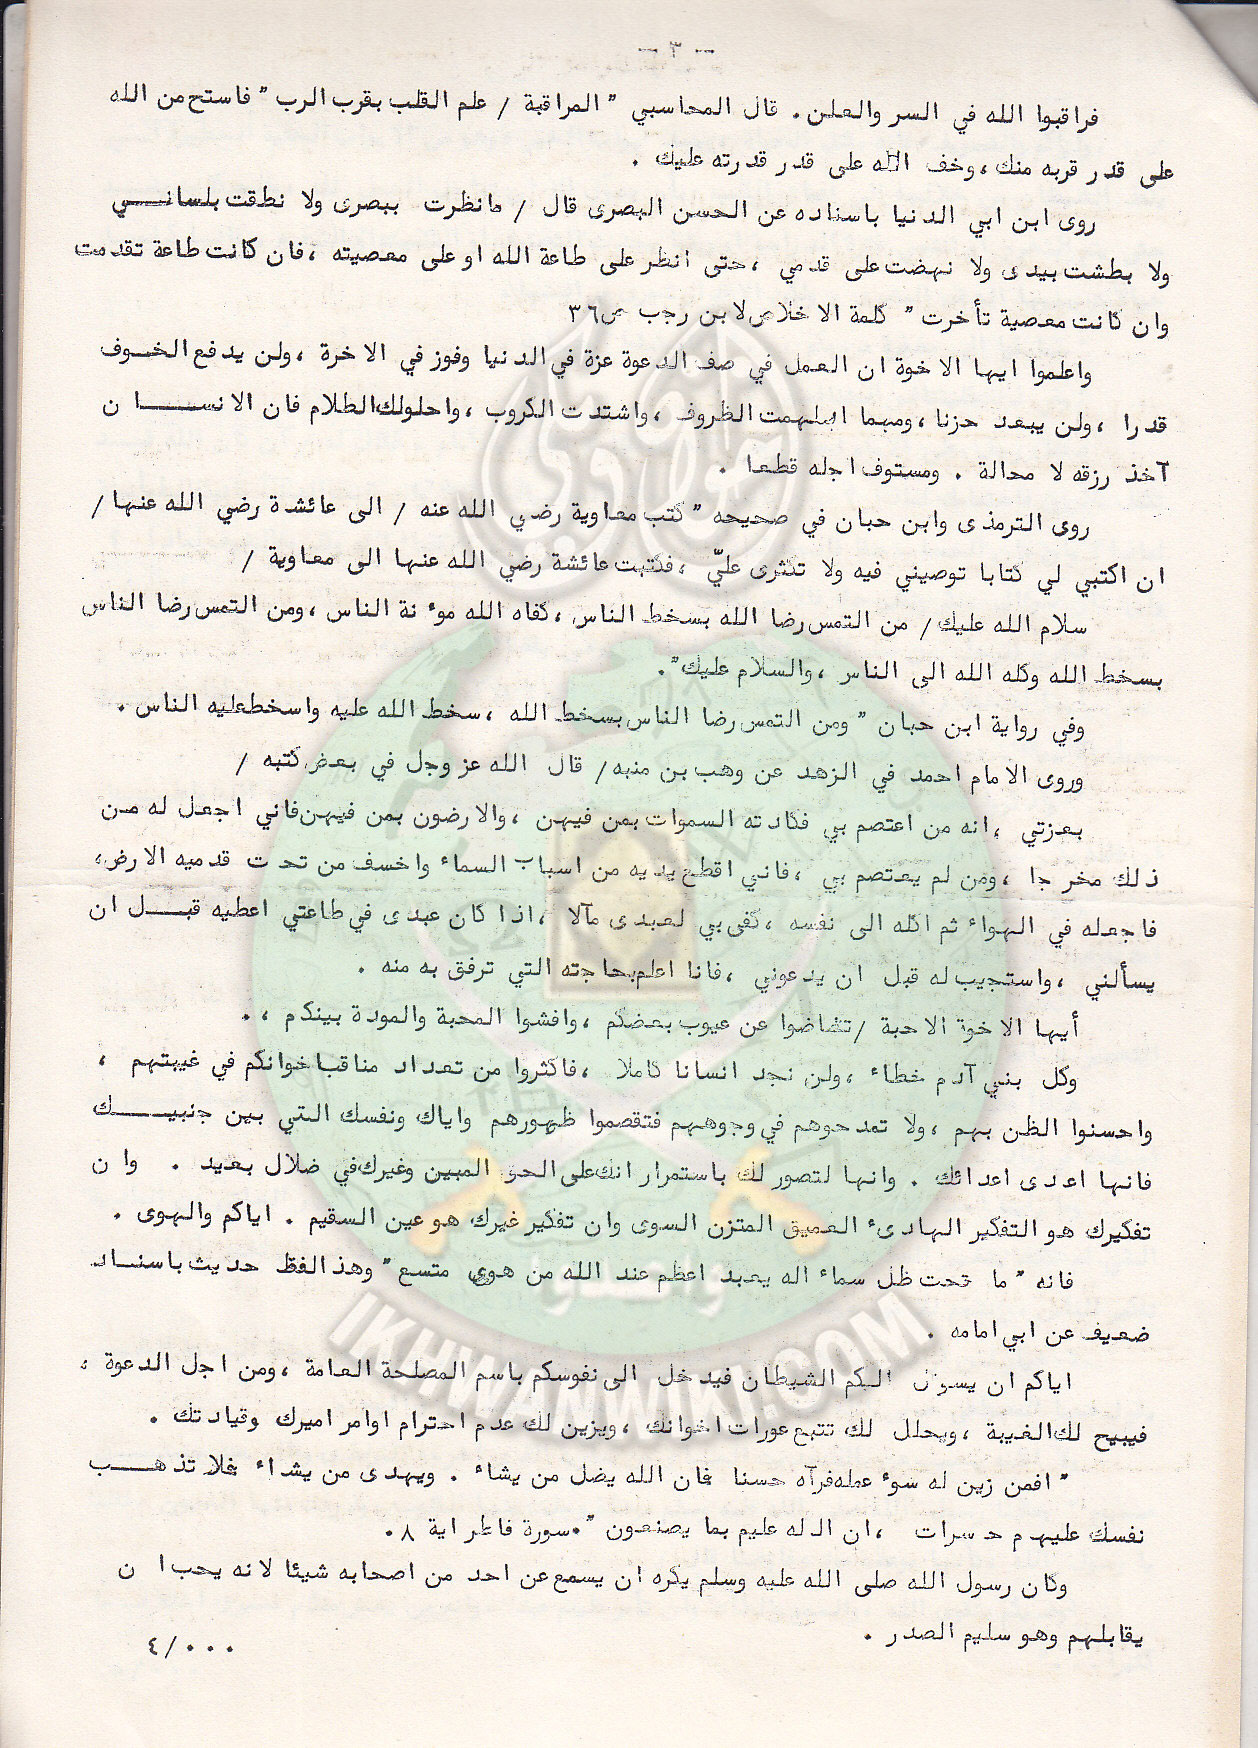 - ٣ -
فراقبوا الله في السر والعلن . قال المحاسبي " المراقبة / علم القلب بقرب الرب " فاستح من الله
على قدر قربه منك ، وخف الله على قدر قدرته عليك .
روى ابن ابي الدنيا باسناده عن الحسن البصرى قال / مانظرت ببصرى ولا نطقت بلساني
ولا بطشت بيدى ولا نهضت على قدمي ، حتى انظر على طاعة الله او على معصيته ، فان كانت طاعة تقدمت
وان كانت معصية تأخرت " كلمة الاخلاص لابن رجب ص ٣٦
واعلموا ايها الاخوة ان العمل في صف الدعوة عزة في الدنيا وفوز في الاخرة ، ولن يدفع الخوف
قدرا ، ولن يبعد حزنا ، ومهما ادلهمت الظروف ، واشتدت الكروب ، واحلولك الظلام فان الانسان
آخذ رزقه لا محالة . ومستوف اجله قطعا .
روى الترمذى وابن حبان في صحيحه " كتب معاوية رضي الله عنه / الى عائشة رضي الله عنها /
ان اكتبي لي كتابا توصيني فيه ولا تكثرى عليّ ، فكتبت عائشة رضي الله عنها الى معاوية /
سلام الله عليك / من التمس رضا الله بسخط الناس ، كفاه الله موءنة الناس ، ومن التمس رضا الناس
بسخط الله وكله الله الى الناس ، والسلام عليك " .
وفي رواية ابن حبان " ومن التمس رضا الناس بسخط الله ، سخط الله عليه واسخط عليه الناس .
وروى الامام احمد في الزهد عن وهب بن منبه / قال الله عز وجل في بعض كتبه /
بعزتي ، انه من اعتصم بي فكادته السموات بمن فيهن ، والارضون بمن فيهن فاني اجعل له من
ذلك مخرجا ، ومن لم يعتصم بي ، فاني اقطع يديه من اسباب السماء واخسف من تحت قدميه الارض ،
فاجعله في الهواء ثم اكله الى نفسه ، كفى بي لعبدى مآلا ، اذا كان عبدى في طاعتي اعطيه قبل ان
يسألني ، واستجيب له قبل ان يدعوني ، فانا اعلم بحاجته التي ترفق به منه .
أيها الاخوة الاحبة / تغاضوا عن عيوب بعضكم ، وافشوا المحبة والمودة بينكم ، .
وكل بني آدم خطاء ، ولن نجد انسانا كاملا ، فاكثروا من تعداد مناقب اخوانكم في غيبتهم ،
واحسنوا الظن بهم ، ولا تمدحوهم في وجوههم فتقصموا ظهورهم واياك ونفسك التي بين جنبيك
فانها اعدى اعدائك . وانها لتصور لك باستمرار انك على الحق المبين وغيرك في ضلال بعيد . وان
تفكيرك هو التفكير الهادىء العميق المتزن السوى وان تفكير غيرك هو عين السقيم . اياكم والهوى .
فانه " ما تحت ظل سماء اله يعبد اعظم عند الله من هوى متسع " وهذ الفظ حديث باسناد
ضعيف عن ابي امامه .
اياكم ان يسول اليكم الشيطان فيدخل الى نفوسكم باسم المصلحة العامة ، ومن اجل الدعوة ،
فيبيح لك الغيبة ، ويحلل لك تتبع عورات اخوانك ، ويزين لك عدم احترام اوامر اميرك وقيادتك .
" افمن زين له سوء عمله فرآه حسنا فان الله يضل من يشاء . ويهدى من يشاء فلا تذهب
نفسك عليهم حسرات ، ان الله عليم بما يصنعون " . سورة فاطر اية ٨ .
وكان رسول الله صلى الله عليه وسلم يكره ان يسمع عن احد من اصحابه شيئا لانه يحب ان
يقابلهم وهو سليم الصدر .
٤/٠٠٠
IKHWANWIKI.COM